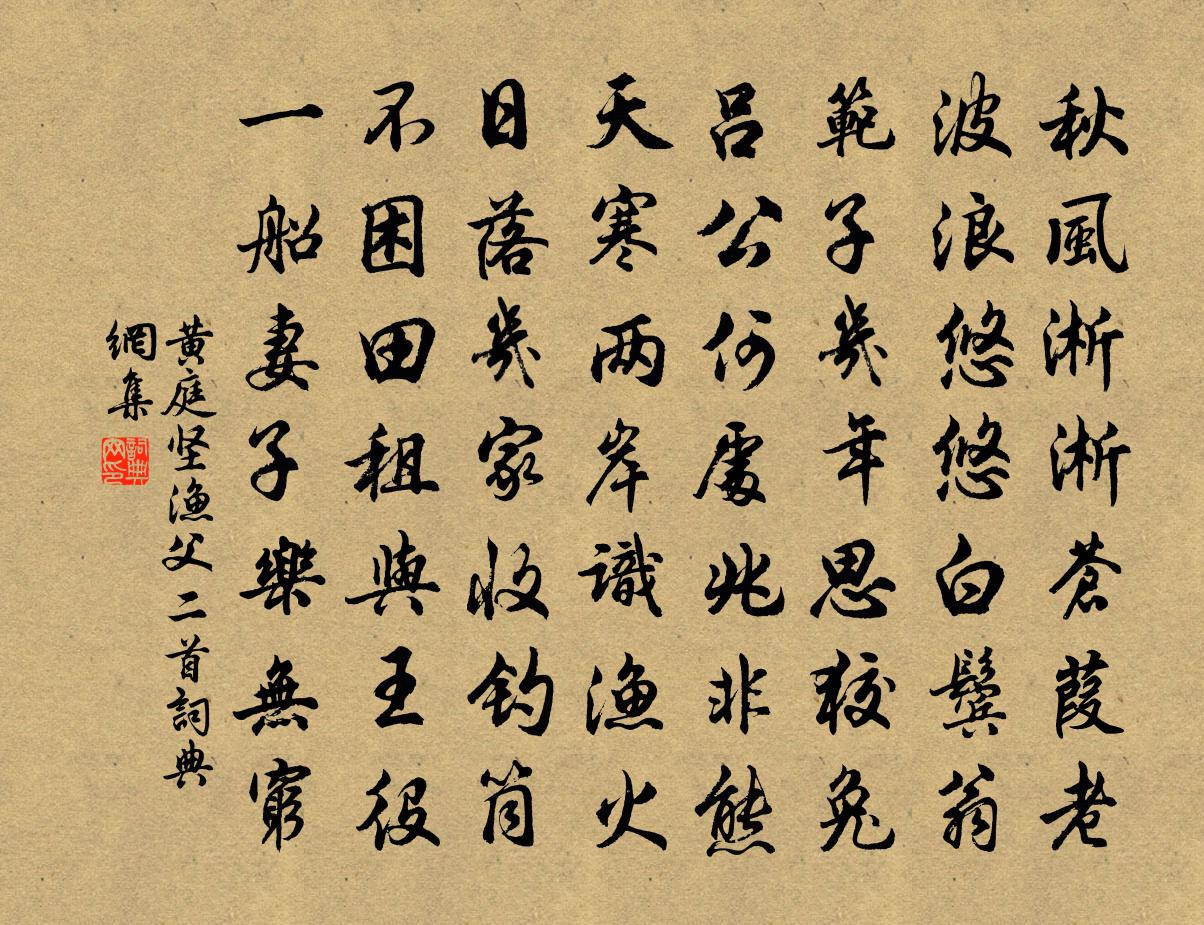 秋風淅淅蒼葭老
波浪悠悠白鬢翁
範子幾年思狡兔
呂公何處兆非熊
天寒兩岸識漁火
日落幾家收釣筒
不困田租與王役
一船妻子樂無窮
黄庭坚漁父二首詞典
網集
詞典
网印